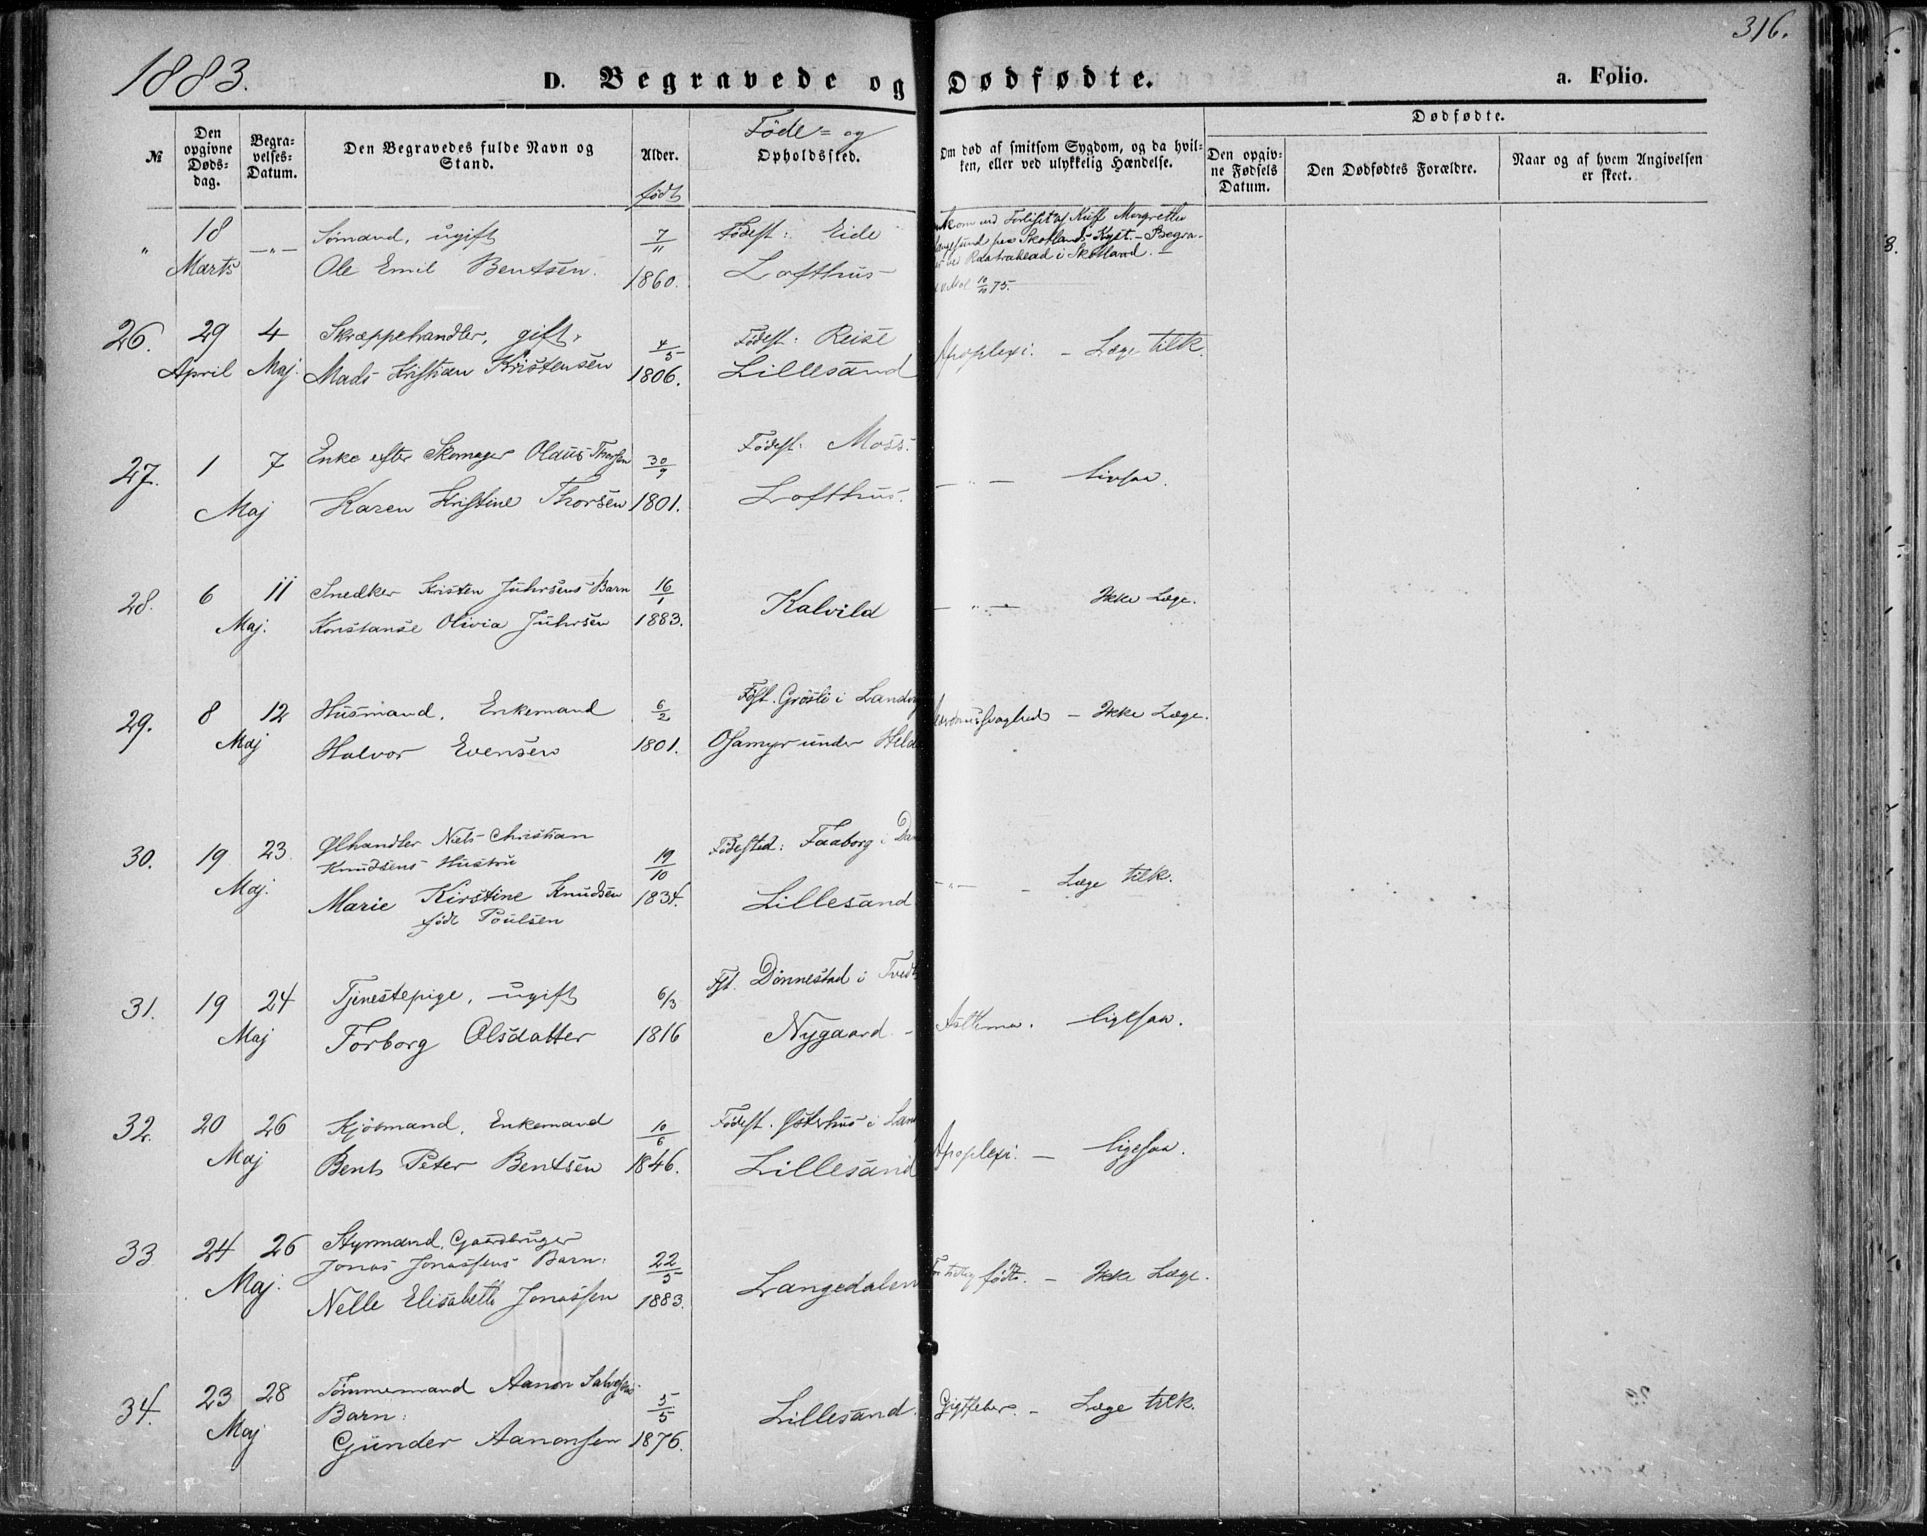 1883.
316.
D. Begravede og Dødfødte.
a. Folio.
№
Den opgivne Døds-dag.
Begra-velses-Datum.
Den Begravedes fulde Navn og Stand.
Alder.
født
Føde= og
Opholdssted.
Om død af smitsom Sygdom, og da hvil-
ken, eller ved ulykkelig Hændelse.
Dødfødte.
Den opgiv-ne Fødsels Datum.
Den Dødfødtes Forældre.
Naar og af hvem Angivelsen er skeet.
" 18 Marts —"—
Sømand, ugift
Ole Emil Bentsen.
7/11 1860.
Fødest: Eide
Lofthus
ved Forliset af Kuff Margrethe
paa Skotlands Kyst. – Begra-
i Skotland. –
10/10 75.
26. 29 April 4 Maj.
Skræppehandler, gift,
Mads Kristian Kristensen
4/5 1806.
Fødest: Reise
Lillesand
Apoplexi. – Læge tilk.
27. 1 7 Maj
Enke efter Skomager Olaus Thorsen
Karen Kristine Thorsen
30/9 1801.
Fødest: Moss.
Lofthus.
— " — ligesaa.
28. 6 11 Maj.
Snedker Kristen Juhrsens Barn
Konstanse Olivia Juhrsen
16/1 1883.
Kalvild
— " — Ikke Læge.
29. 8 12 Maj
Husmand, Enkemand
Halvor Evensen
6/2 1801.
Føst. Grøsle i Landv
Osamyr under Helde
– Ikke Læge.
30. 19 23 Maj.
Ølhandler Niels Christian
Knudsens Hustru
Marie Kirstine Knudsen
født Poulsen
19/10 1834.
Fødested: Faaborg i Dan
Lillesand
—"— – Læge tilk.
31. 19 24 Maj
Tjenestepige, ugift
Torborg Olsdatter
6/3 1816
Fst. Dønnestad i Tvedt
Nygaard –
Asthma. ligesaa.
32. 20 26 Maj
Kjøbmand, Enkemand
Bent Peter Bentsen
10/6 1846.
Fødest. Østerhus i Lan
Lillesand
Apoplexi. – ligesaa.
33 24 26 Maj.
Styrmand, Gaardbruger
Jonas Jonassens Barn:
Nelle Elisabeth Jonassen
22/5 1883.
Langedalen
For tidlig født. – Ikke Læge.
34. 23 28 Maj
Tømmermand Aanon Salvesens
Barn:
Gunder Aanonsen
5/5 1876.
Lillesand.
Gigtfeber. – Læge tilk.